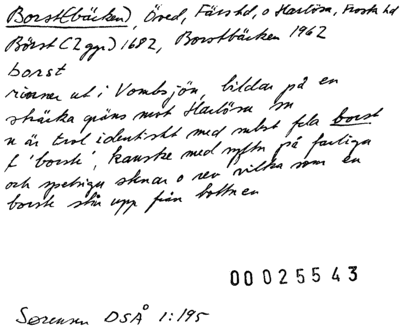 Borst(bäcken), Öved, Färs hd, o Harlösa, Frosta hd
Börst (2 ggr) 1682, Borstbäcken 1962
borst
rinner ut i Vombsjön, bildar på en
sträcka gräns mot Harlösa sn
n är trol identiskt med subst fda borst
f 'borste', kanske med syftn på farliga
och spetsiga stenar o rev vilka som en
borste står upp från bottnen
00025543
Sørensen DSÅ 1:195